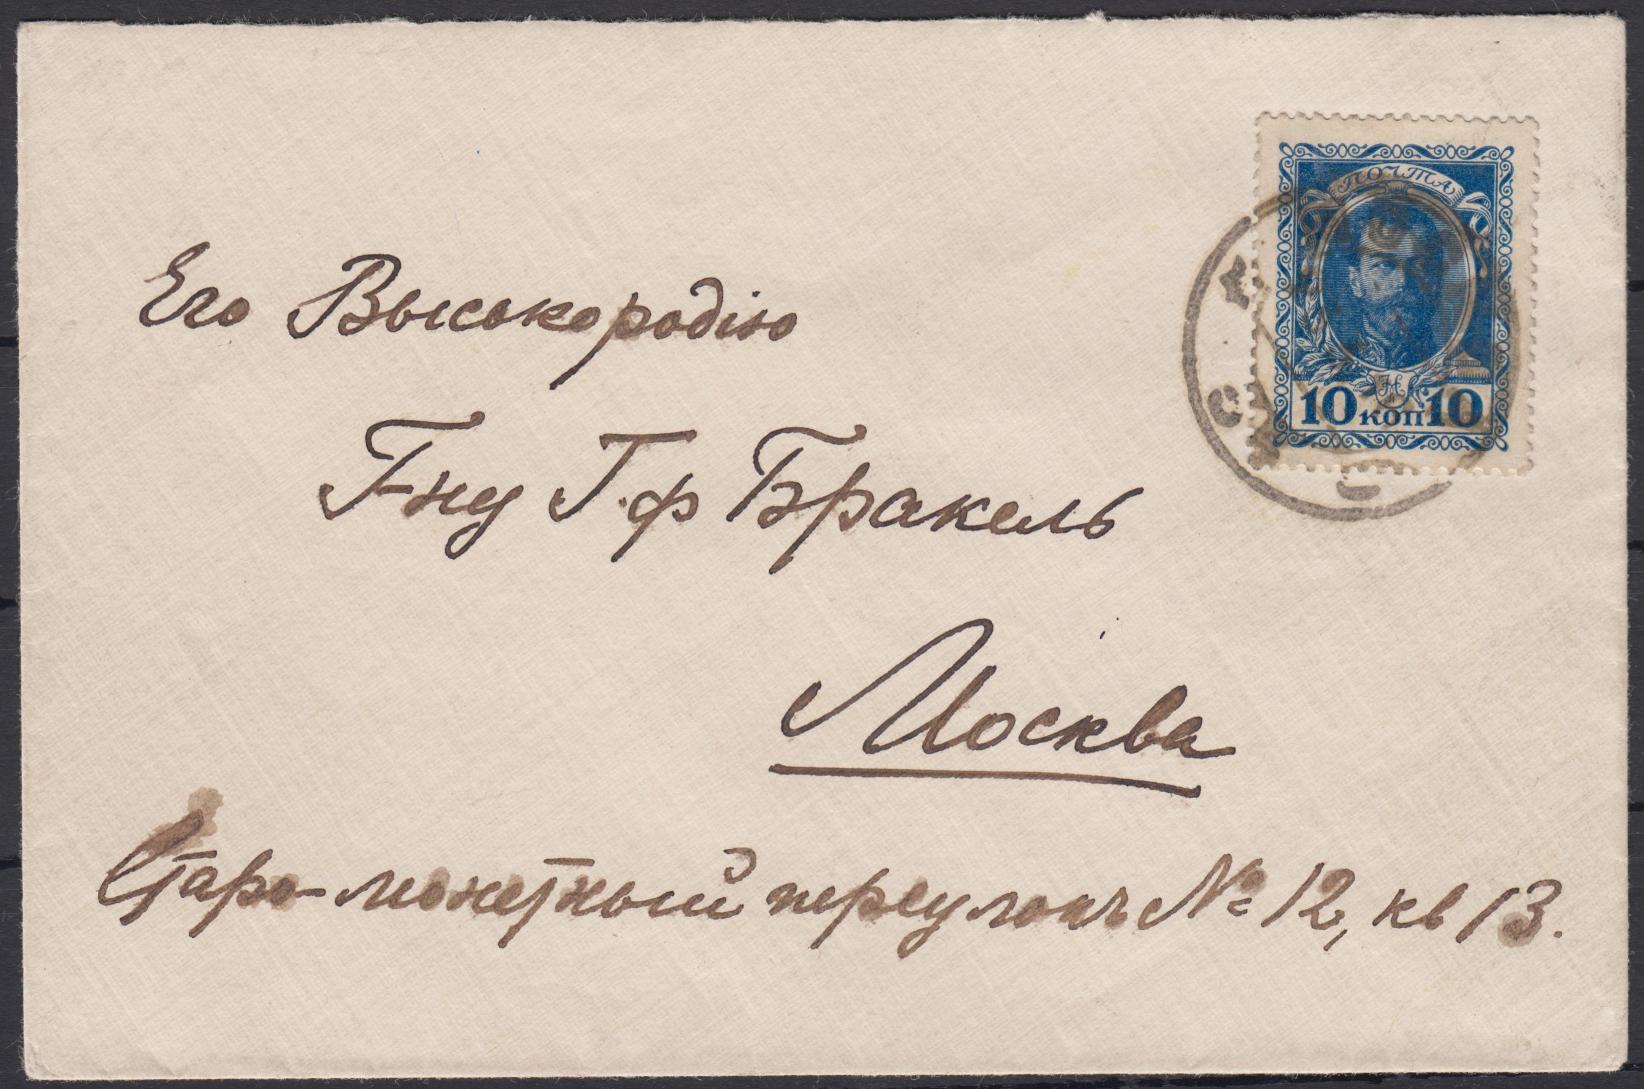 ПОЧТА
10 КОП 10
Его Высокородію
Г-ну Г. ф Бракель
Москва
Старо-монетный переулокъ № 12, кв 13.